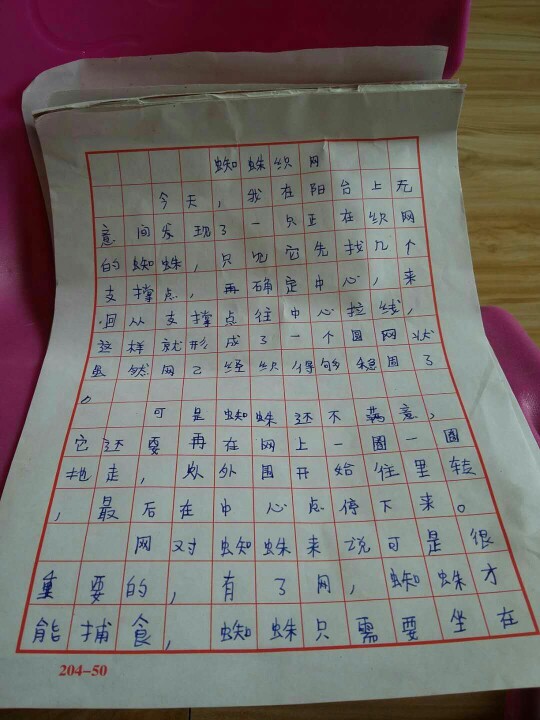 蜘蛛织网
今天，我在阳台上无
意间发现了一只正在织网
的蜘蛛，只见它先找几个
支撑点，再确定中心，来
回从支撑点往中心拉线，
这样就形成了一个圆网状
虽然网已经织得够稳固了
。
可是蜘蛛还不满意，
它还要再在网上一圈一圈
地走，从外围开始往里转
，最后在中心点停下来。
网对蜘蛛来说可是很
重要的，有了网，蜘蛛才
能捕食，蜘蛛只需要坐在
204-50